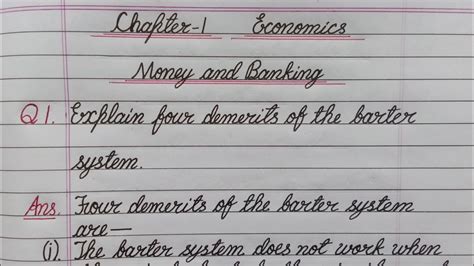 Chapter-1 Economics
Money and Banking
Q1. Explain four demerits of the barter
system.
Ans. Four demerits of the barter system
are—
(i) The barter system does not work when